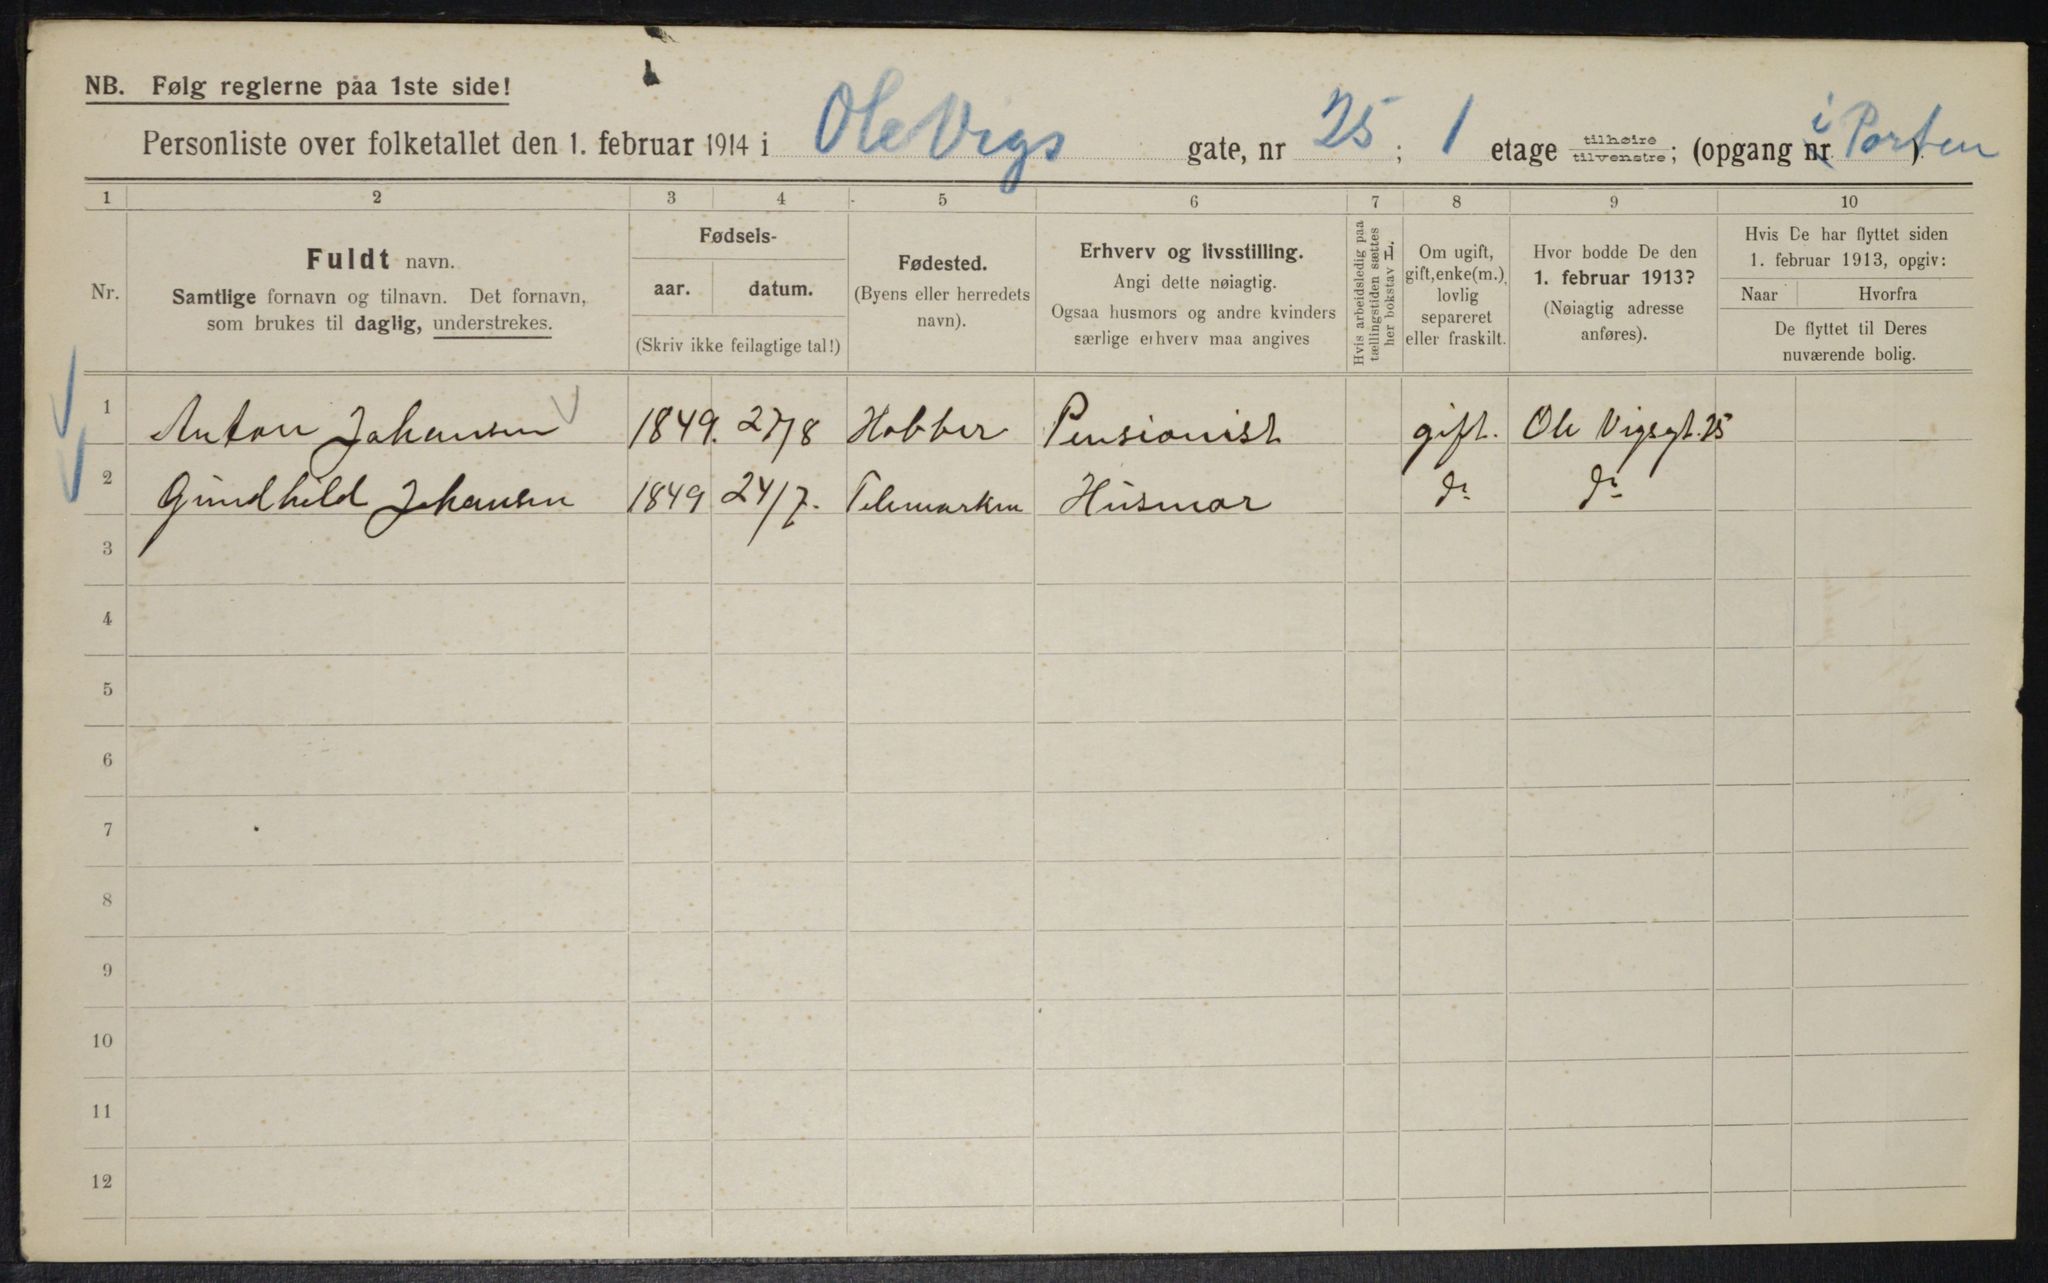 NB. Følg reglerne paa 1ste side!
Personliste over folketallet den 1. februar 1914 i Ole Vigs gate, nr 25; 1 etage tilhøire tilvenstre; (opgang nr i Porten)
1 2 3 4 5 6 7 8 9 10
Nr.
Fuldt navn.
Samtlige fornavn og tilnavn. Det fornavn,
som brukes til daglig, understrekes.
Fødsels-
aar. datum.
(Skriv ikke feilagtige tal!)
Fødested.
(Byens eller herredets
navn).
Erhverv og livsstilling.
Angi dette nøiagtig.
Ogsaa husmors og andre kvinders
særlige erhverv maa angives
Hvis arbeidsledig paa
tællingstiden sættes
her bokstav L.
Om ugift,
gift, enke(m.),
lovlig
separeret
eller fraskilt.
Hvor bodde De den
1. februar 1913?
(Nøiagtig adresse
anføres).
Hvis De har flyttet siden
1. februar 1913, opgiv:
Naar Hvorfra
De flyttet til Deres
nuværende bolig.
1 Anton Johansen 1849. 27/8 Hobber Pensionist gift. Ole Vigsgt. 25
2 Gundhild Johansen 1849 24/7. Telemarken Husmor do do
3
4
5
6
7
8
9
10
11
12